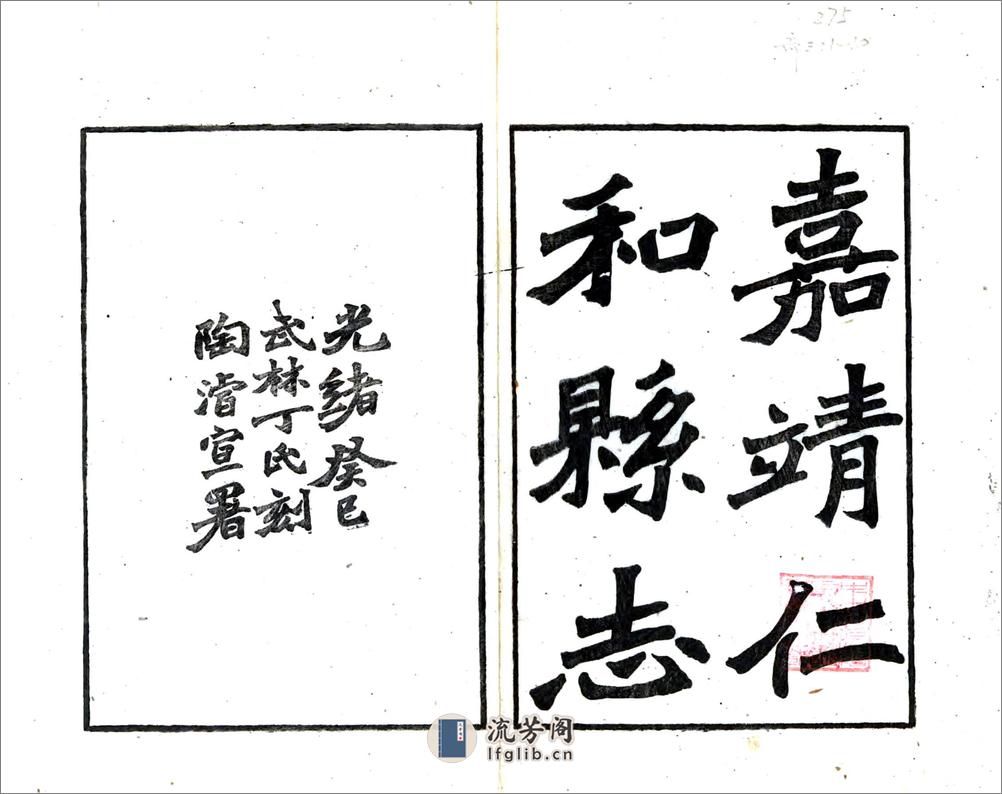 嘉靖仁
和縣志
光緒癸巳
武林丁氏刻
陶濬宣署
375
流芳阁
lfglib.cn